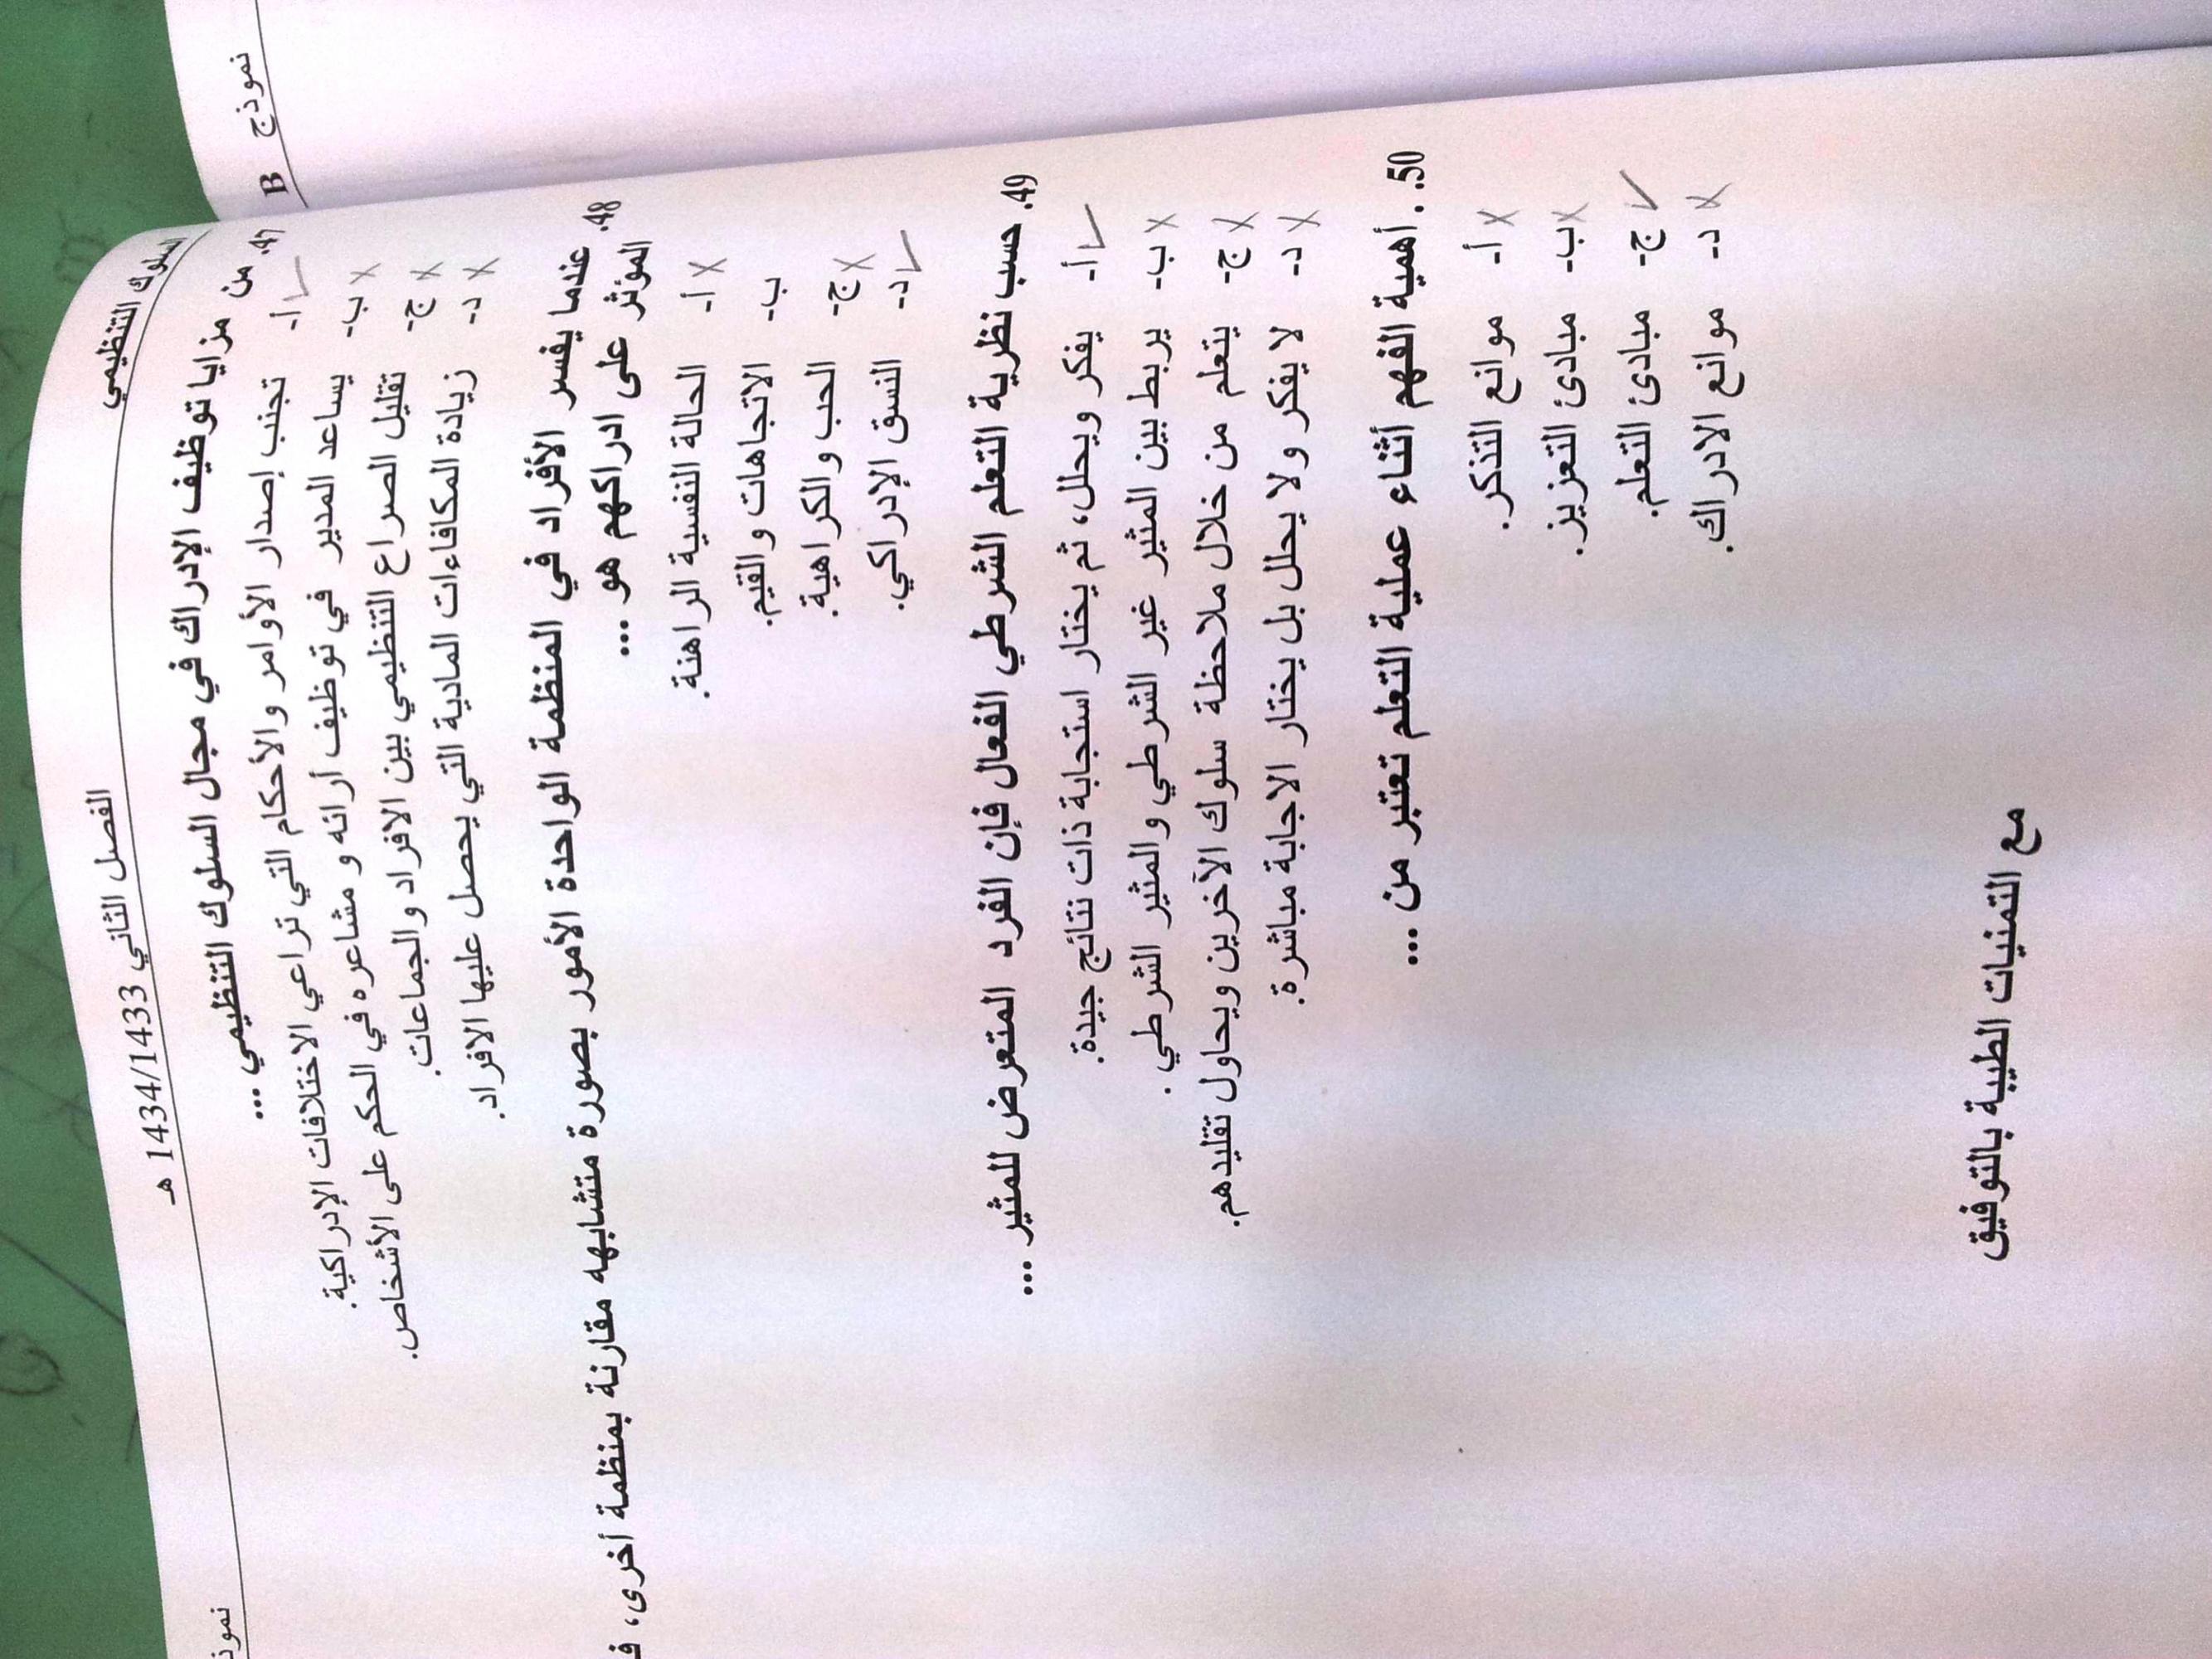 السلوك التنظيمي
الفصل الثاني 1434/1433 هـ
نموذج B
47. من مزايا توظيف الإدراك في مجال السلوك التنظيمي ...
أ- تجنب إصدار الأوامر والأحكام التي تراعي الاختلافات الإدراكية.
ب- يساعد المدير في توظيف أرائه و مشاعره في الحكم على الأشخاص.
ج- تقليل الصراع التنظيمي بين الافراد والجماعات.
د- زيادة المكافاءات المادية التي يحصل عليها الافراد.
48. عندما يفسر الأفراد في المنظمة الواحدة الأمور بصورة متشابهه مقارنة بمنظمة أخرى،
المؤثر على ادراكهم هو ...
أ- الحالة النفسية الراهنة.
ب- الاتجاهات والقيم.
ج- الحب والكراهية.
د- النسق الإدراكي.
49. حسب نظرية التعلم الشرطي الفعال فإن الفرد المتعرض للمثير ...
أ- يفكر ويحلل، ثم يختار استجابة ذات نتائج جيدة.
ب- يربط بين المثير غير الشرطي والمثير الشرطي .
ج- يتعلم من خلال ملاحظة سلوك الآخرين ويحاول تقليدهم.
د- لا يفكر ولا يحلل بل يختار الاجابة مباشرة.
50. . أهمية الفهم أثناء عملية التعلم تعتبر من ...
أ- موانع التذكر.
ب- مبادئ التعزيز.
ج- مبادئ التعلم.
د- موانع الادراك.
مع التمنيات الطيبة بالتوفيق